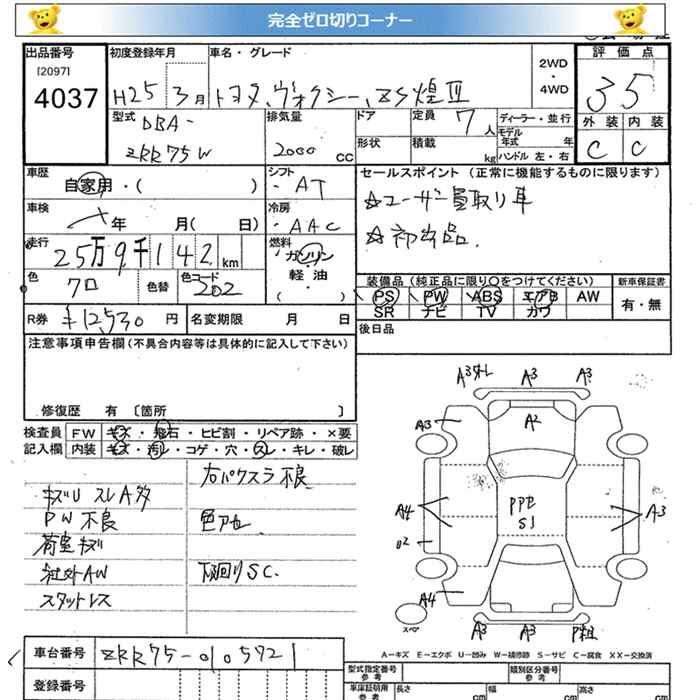 完全ゼロ切りコーナー
出品番号 初度登録年月 車名・グレード 評価点
[2097]
4037
H25 3月 トヨタ、ヴォクシー、ZS煌Ⅲ 2WD・4WD 35
型式 DBA- 排気量 ドア 定員 7人 ディーラー・並行 外装 内装
モデル年式 年
ZRR75W 2000cc 形状 積載 kg ハンドル 左・右 C C
車歴 シフト セールスポイント (正常に機能するものに限ります)
自家用・( ) AT ☆ユーザー買取り車
車検 冷房
年 月( 日) AAC ☆初出品.
走行 燃料
25万9千142km ガソリン
軽油
( )
色 クロ 色替 色コード 202
装備品 (純正品に限り〇をつけてください) 新車保証書
PS PW ABS エアB AW 有・無
SR ナビ TV カワ
R券 ¥12,530円 名変期限 月 日 後日品
注意事項申告欄(不具合内容等は具体的に記入して下さい)
修復歴 有 〔箇所 〕
検査員 FW キズ・飛石・ヒビ割・リペア跡・×要
記入欄 内装 キズ・汚レ・コゲ・穴・スレ・キレ・破レ
右パワスラ不良
キズU スレA多
PW不良 色アセ
荷室キズ
社外AW 下回りSC.
スタットレス
A3 A3 A3
A3 A2
A4 PPE A3
S1
U2
A4
スペア
A3 A3 P粗
A-キズ E-エクボ U-凹み W-補修跡 S-サビ C-腐食 XX-交換済
車台番号 ZRR75-0105721 型式指定番号 参考 類別区分番号 参考
登録番号 車庫証明用 参考 長さ cm 幅 cm 高さ cm